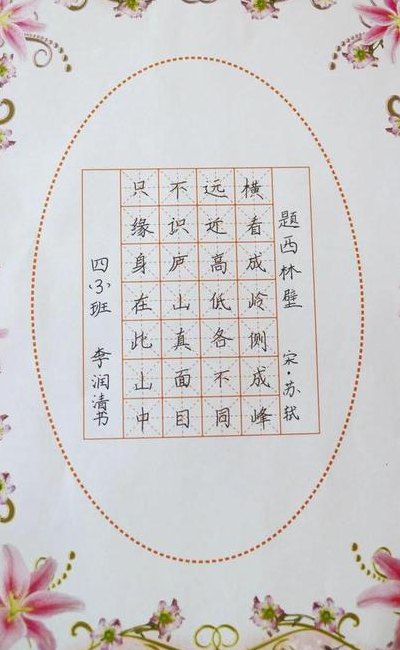 題西林壁 宋·苏轼
横看成岭侧成峰
远近高低各不同
不识庐山真面目
只缘身在此山中
四(3)班 李润清书